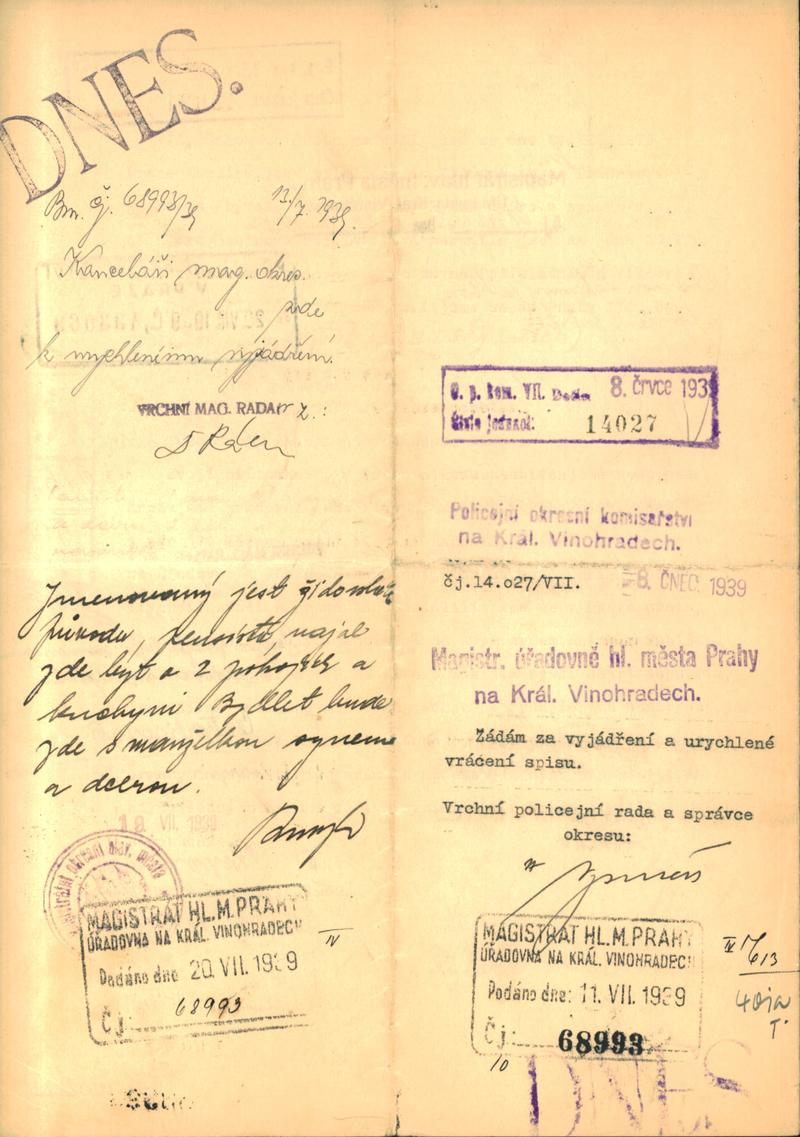 DNES.
čj. 68993/39 13/7. 1939.
Kanceláři mag. okres.
zde
k vyjádření.
VRCHNÍ MAG. RADA z.:
Jmenovaný jest židovsk
původu, pensista, najal
zde byt o 2 pokojích a
kuchyni Bydlet bude
zde s manželkou synem
a dcerou.
18 VII. 1939
MAGISTRÁT HL. M. PRAHY
ÚŘADOVNA NA KRÁL. VINOHRADECH
Podáno dne 20. VII. 1939
Čj: 68993
IV
O. p. kom. VII. Došlo 8. črvce 1939
Číslo jednací: 14027
Policejní okresní komisařství
na Král. Vinohradech.
čj.14.027/VII. 8. ČNEC 1939
Magistr. úřadovně hl. města Prahy
na Král. Vinohradech.
Žádám za vyjádření a urychlené
vrácení spisu.
Vrchní policejní rada a správce
okresu:
MAGISTRÁT HL. M. PRAHY
ÚŘADOVNA NA KRÁL. VINOHRADECH
Podáno dne: 11. VII. 1939
Čj: 68993
10
IV
DNES